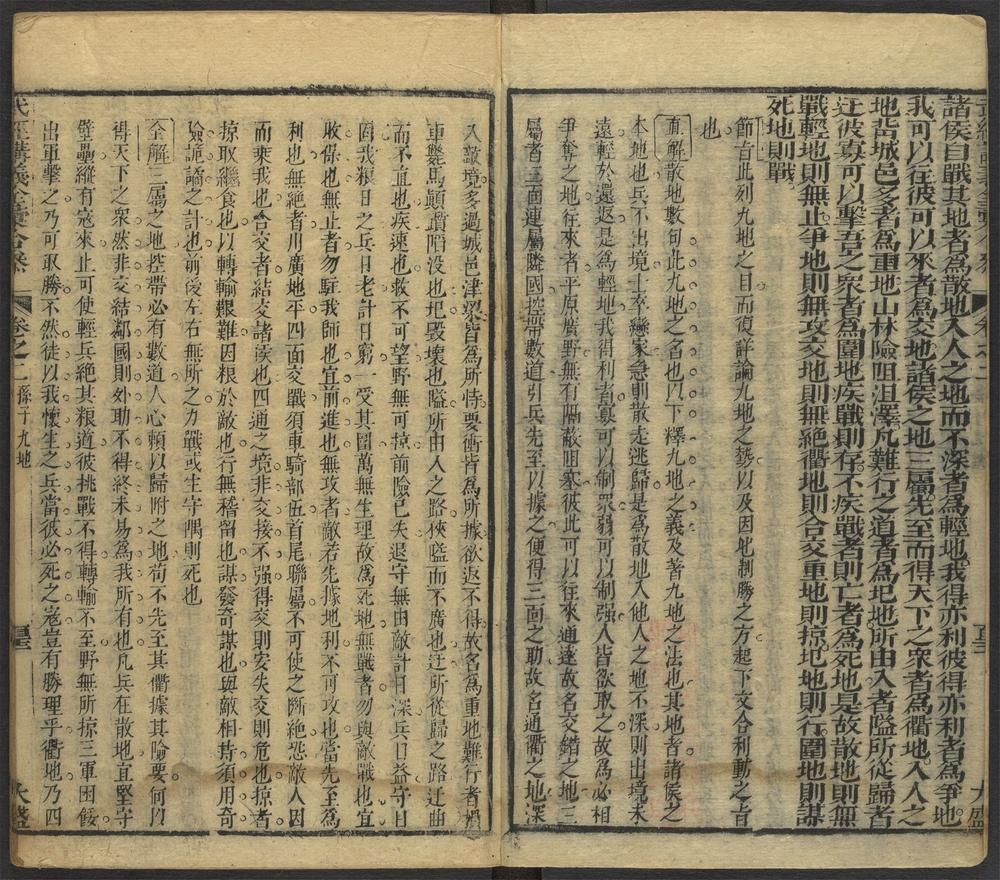 諸侯自戰其地者為散地入人之地而不深者為輕地我得亦利彼得亦利者為爭地
我可以往彼可以來者為交地諸侯之地三屬先至而得天下之衆者為衢地入人之
地背城邑多者為重地山林險阻沮澤凡難行之道者為圮地所由入者隘所從歸者
迂彼寡可以擊吾之衆者為圍地疾戰則存不疾戰者則亡者為死地是故散地則無
戰輕地則無止爭地則無攻交地則無絕衢地則合交重地則掠圮地則行圍地則謀
死地則戰
節旨此列九地之目而復詳論九地之勢以及因地制勝之方起下文合利動之旨
也
直解散地數句此九地之名也以下釋九地之義及著九地之法也其地者諸侯之
本地也兵不出境士卒戀家急則散走逃歸是為散地入他人之地不深則出境未
遠輕於還返是為輕地我得利者寡可以制眾弱可以制强人皆欲取之故為必相
爭奪之地往來者平原廣野無有隔蔽阻塞彼此可以往來通達故名交錯之地三
屬者三面連屬隣國控帶數道引兵先至以據之便得三面之助故名通衢之地深
入敵境多過城邑津梁皆為所恃要衝皆為所據欲返不得故名為重地難行者
車斃馬顛陷没也圮毀壞也隘所由入之路狹隘而不廣也迂所從歸之路迂曲
而不直也疾速也救不可望野無可掠前險已失退守無由敵計日深兵日益守日
因我粮日乏兵日老計日窮一受其圍萬無生理故為死地無戰者勿與敵戰也宜
收保也無止者勿駐我師也宜前進也無攻者敵若先據地利不可攻也當先至為
利也無絕者川廣地平四面交戰須車騎部伍首尾聯屬不可使之斷絕恐敵人因
而乘我也合交者結交諸侯也四通之境非交接不强得交則安失交則危也掠者
掠取繼食也以轉輸艱難因粮於敵也行無稽留也謀發奇謀也與敵相持須用奇
險詭譎之計也前後左右無所之力戰或生守隅則死也
全解三屬之地控帶必有數道人心頼以歸附之地苟不先至其衢據其險要何以
得天下之衆然非交結鄰國則外助不得終未易為我所有也凡兵在散地宜堅守
壁壘縱有寇來止可使輕兵絕其粮道彼挑戰不得轉輸不至野無所掠三軍困餒
出軍擊之乃可取勝不然徒以我懷生之兵當彼必死之寇豈有勝理乎衢地乃四
武經講義全彙合叅
卷之二
孫子九地
大盛